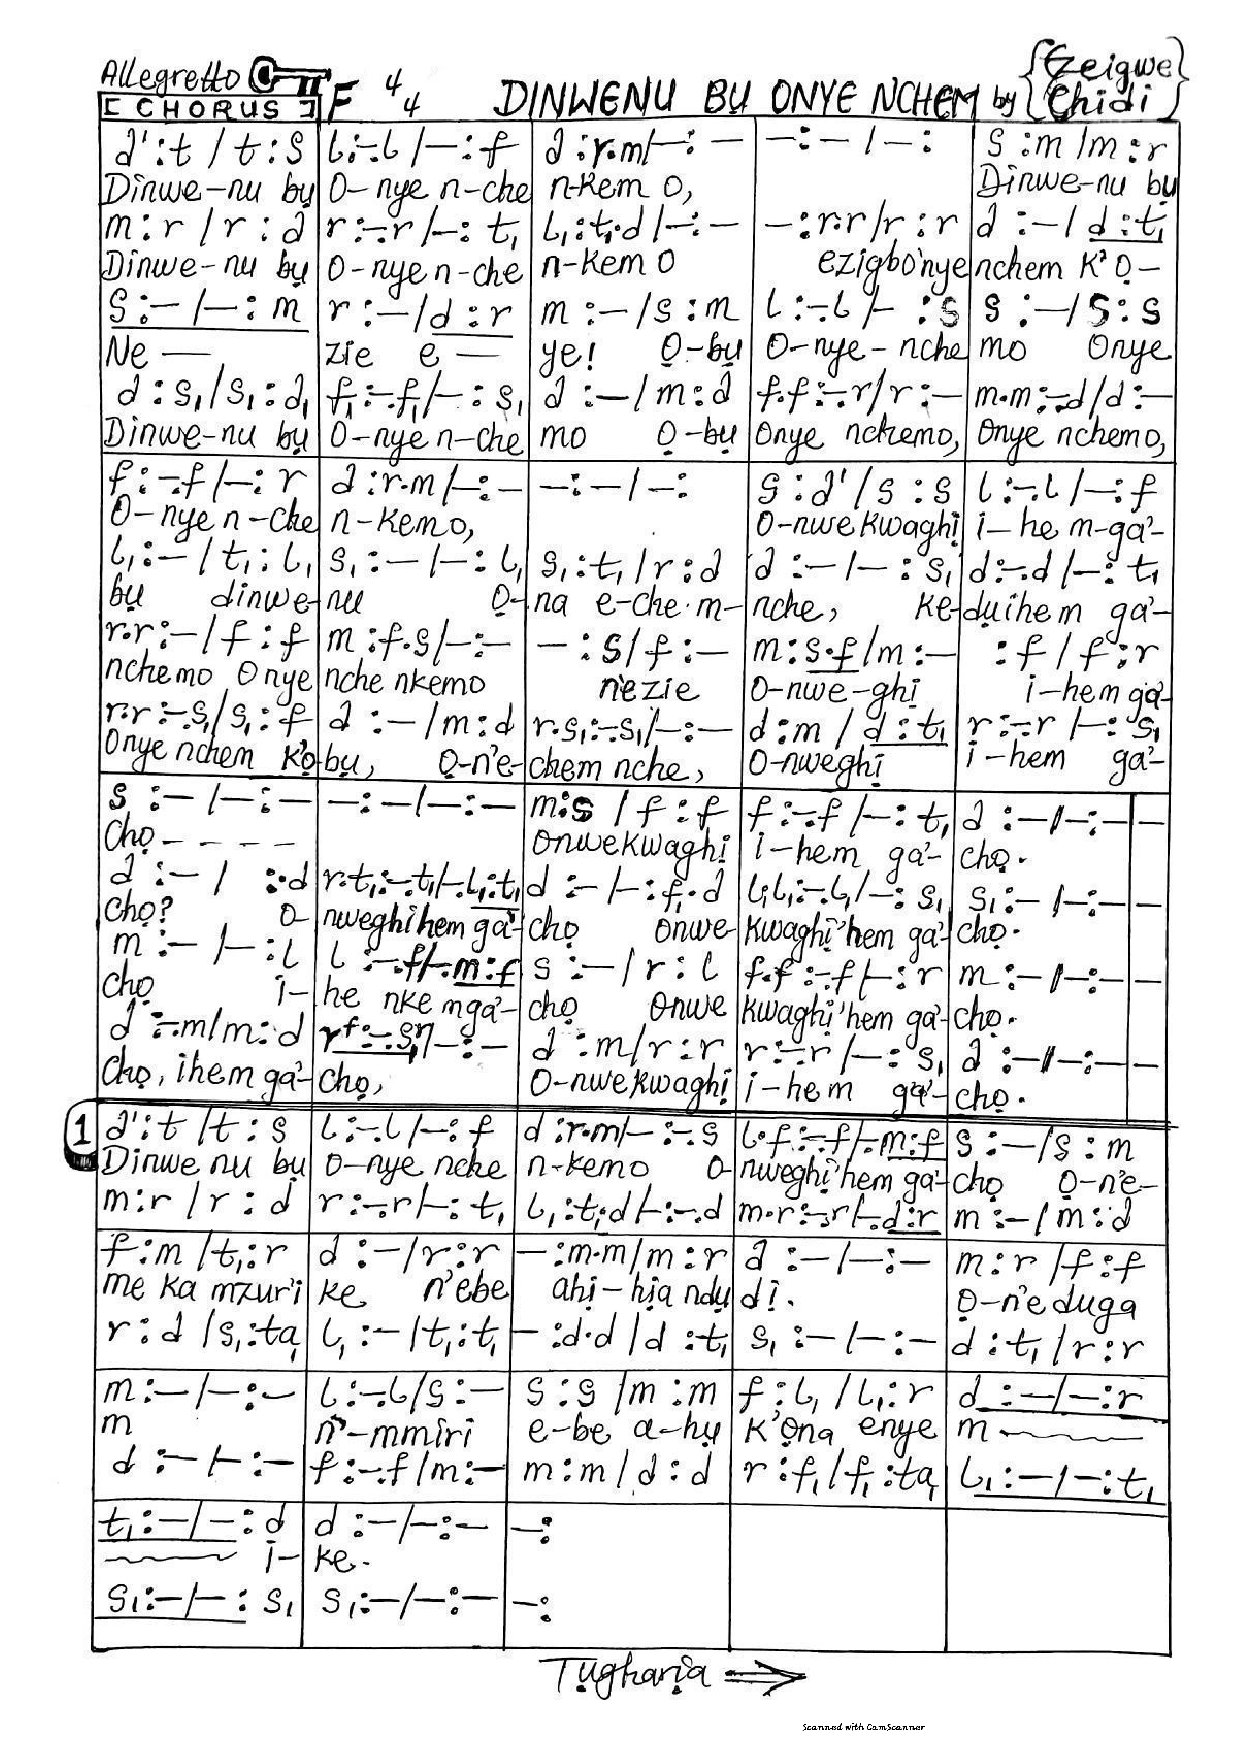 Allegretto
[CHORUS] F 4/4 DINWENU BỤ ONYE NCHEM by {Ezeigwe Chidi}
d':t / t:s | l:-.l /-:f | d:r.m/-:- | -:-/-: | s:m /m:r
Dinwe-nu bụ | O-nye n-che | n-kem O, | | Dinwe-nu bụ
m:r / r:d | r:-.r/-:t₁ | l₁:t₁.d/-:- | -:r.r/r:r | d:-/d:t₁
Dinwe-nu bụ | O-nye n-che | n-kem O | ezigbo'nye | nchem K'Ọ-
s:-/-:m | r:-/d:r | m:-/s:m | l:-.l/-:s | s:-/s:s
Ne — | zie e — | ye! Ọ-bụ | O-nye-nche | mo Onye
d:s₁/s₁:d₁ | f₁:-.f₁/-:s₁ | d:-/m:d | f.f:-.r/r:- | m.m:-.d/d:-
Dinwe-nu bụ | O-nye n-che | mo Ọ-bụ | Onye nchemo, | Onye nchemo,
f:-.f/-:r | d:r.m/-:- | -:-/-: | s:d'/s:s | l:-.l/-:f
O-nye n-che | n-kemo, | | O-nwe kwaghị | i-he m-ga'-
l₁:-/t₁:l₁ | s₁:-/-:l₁ | s₁:t₁/r:d | d:-/-:s₁ | d:-.d/-:t₁
bụ dinwe- | nu Ọ- | na e-che m- | nche, ke- | dụ ihem ga'-
r.r:-/f:f | m:f.s/-:- | -:s/f:- | m:s.f/m:- | :f/f:r
nchemo Onye | nche nkemo | n'ezie | O-nwe-ghị | i-hem ga'-
r.r:-.s₁/s₁:f | d:-/m:d | r.s₁:-.s₁/-:- | d:m/d:t₁ | r:-.r/-:s₁
Onye nchem K'ọ- | bụ, Ọ-n'e- | chem nche, | O-nweghị | i-hem ga'-
s:-/-:- | -:-/-:- | m:s/f:f | f:-.f/-:t₁ | d:-/-:-
Chọ - - - - | | Onwekwaghị | i-hem ga'- | chọ.
d:-/ :.d | r.t₁:-.t₁/-.l₁:t₁ | d:-/-:f₁.d | l₁.l₁:-.l₁/-:s₁ | s₁:-/-:-
Chọ? O- | nweghị ihem ga'- | chọ onwe | kwaghị 'hem ga'- | chọ.
m:-/-:l | l:-.f/-.m:f | s:-/r:l | f.f:-.f/-:r | m:-/-:-
chọ i- | he nke mga'- | chọ onwe | kwaghị 'hem ga'- | chọ.
d:-.m/m:d | /-:- | d:m/r:r | r:-.r/-:s₁ | d:-/-:-
chọ, ihem ga'- | Chọ, | O-nwekwaghị | i-hem ga'- | chọ.
1 d':t/t:s | l:-.l/-:f | d:r.m/-:-.s | l.f:-.f/-.m:f | s:-/s:m
Dinwe nu bụ | O-nye nche | n-kemo O- | nweghị 'hem ga'- | chọ Ọ-n'e-
m:r/r:d | r:-.r/-:t₁ | l₁:t₁.d/-:-.d | m.r:-.r/-.d:r | m:-/m:d
f:m/t₁:r | d:-/r:r | -:m.m/m:r | d:-/-:- | m:r/f:f
me ka mzuri | ke n'ebe | ahị-hịa ndụ | dị. | Ọ-n'eduga
r:d/s₁:ta₁ | l₁:-/t₁:t₁ | -:d.d/d:t₁ | s₁:-/-:- | d:t₁/r:r
m:-/-:- | l:-.l/s:- | s:s/m:m | f:l₁/l₁:r | d:-/-:r
m | n'-mmiri | e-be a-hụ | K'Ọna enye | m
d:-/-:- | f:-.f/m:- | m:m/d:d | r:f₁/f₁:ta₁ | l₁:-/-:t₁
t₁:-/-:d | d:-/-:- | -:
i- | ke.
s₁:-/-:s₁ | s₁:-/-:- | -:
Tụgharịa ⇒
Scanned with CamScanner